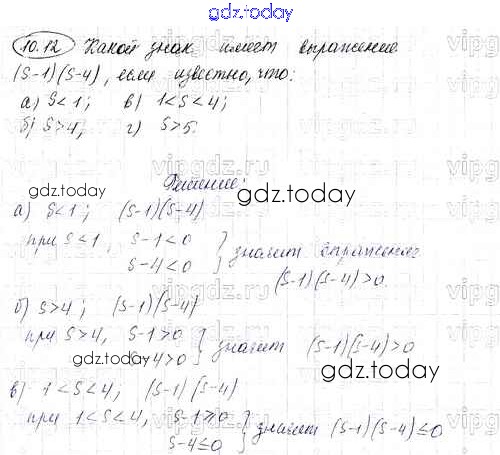 gdz.today
10.12 Какой знак имеет выражение
(S-1)(S-4), если известно, что:
а) S<1; в) 1<S<4;
б) S>4; г) S>5.
vipgdz.ru
gdz.today
Решение:
gdz.today
а) S<1; (S-1)(S-4)
при S<1, S-1<0
S-4<0 } значит выражение
(S-1)(S-4)>0.
б) S>4; (S-1)(S-4)
при S>4, S-1>0
S-4>0 } значит (S-1)(S-4)>0
gdz.today
gdz.today
в) 1<S<4, (S-1)(S-4)
при 1<S<4, S-1≥0
S-4≤0 } значит (S-1)(S-4)≤0